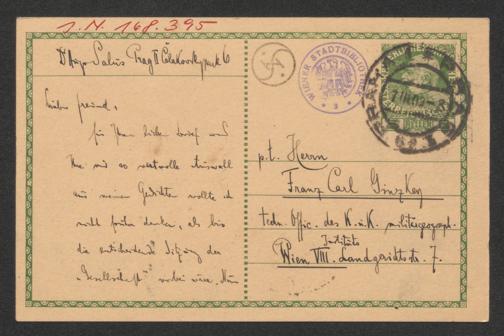 I. N. 168.395
Dr Hugo Salus Prag II Celakovskypark 6
WIENER STADTBIBLIOTHEK
Lieber Freund,
für Ihren lieben Brief und
Ihre mir so wertvolle Auswahl
aus meinen Gedichten wollte ich
nicht früher danken, als bis
die entscheidende Sitzung der
"Gesellschaft" vorbei wäre. Nun
p.t. Herrn
Franz Carl Ginzkey
techn. Offic. des K.u.K. militärgeograph.
Instituts
Wien VIII. Landgerichtsstr. 7.